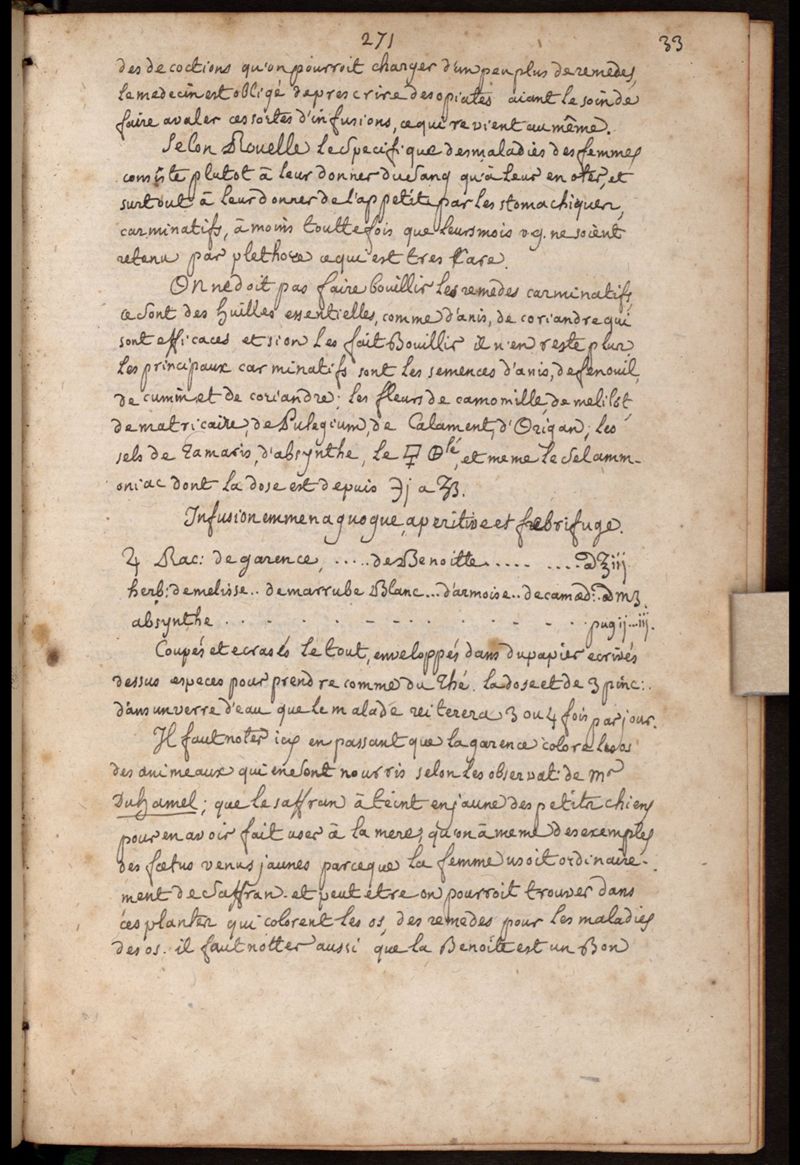 271
33
des decoctions qu'on pourroit charger d'un peu plus de remedes,
le medecin est obligé de prescrire des opiates aiant le soin de
faire avaler ces sortes d'infusions, ce qui revient au même.
Selon Rouelle le Specifique des maladies des femmes
consiste plutot à leur donner du Sang qu'à leur en oter, et
surtout à leur donner de l'appetit par les stomachiques,
carminatifs, à moins touttefois que leurs mois v.g. ne soient
retenu par plethore ce qui est tres Rare.
On ne doit pas faire bouillir les remedes carminatifs,
ce sont des huilles essentielles, comme d'anis, de coriandre qui
sont efficaces et si on les fait Bouillir il n'en reste plus.
Les principaux carminatifs sont les semences d'anis, de fenouil,
de cumin et de coriandre; les fleurs de camomille, de melilot,
de matricaire, de Pulegium, de Calament, d'Origan; les
sels de Tamaris, d'absynthe, le et meme le Sel amm-
oniac dont la dose est depuis ℈j a ʒß.
Infusion emmenaguogue, aperitive et febrifuge.
♃ Rac: de garence, ..... de Benoitte..... .... aʒiij
herb: de melisse.. de marrube Blanc... d'armoise.. de camæd:. am3.
absynthe . . . . - - - . . - - . . pug ij...iij.
Coupés et ecrasés le tout, enveloppés dans du papier ecrivés
dessus especes pour prendre comme du Thé. la dose et de 3 pinc:.
dans un verre d'eau que le malade reiterera 3 ou 4 fois par jour.
Il faut noter icy en passant que la garence colore les os
des animeaux qui en sont nourris selon les observat: de Mr
Duhamel; que le saffran à teint en jaune des petits chiens
pour en avoir fait user à la mere, qu'on à meme des exemples
des fœtus venus jaunes parceque la femme usoit ordinaire-
ment de Saffran. et peut etre on pourroit trouver dans
ces plantes qui colorent les os, des remedes pour les maladies
des os. il faut notter aussi que la Benoite est un Bon